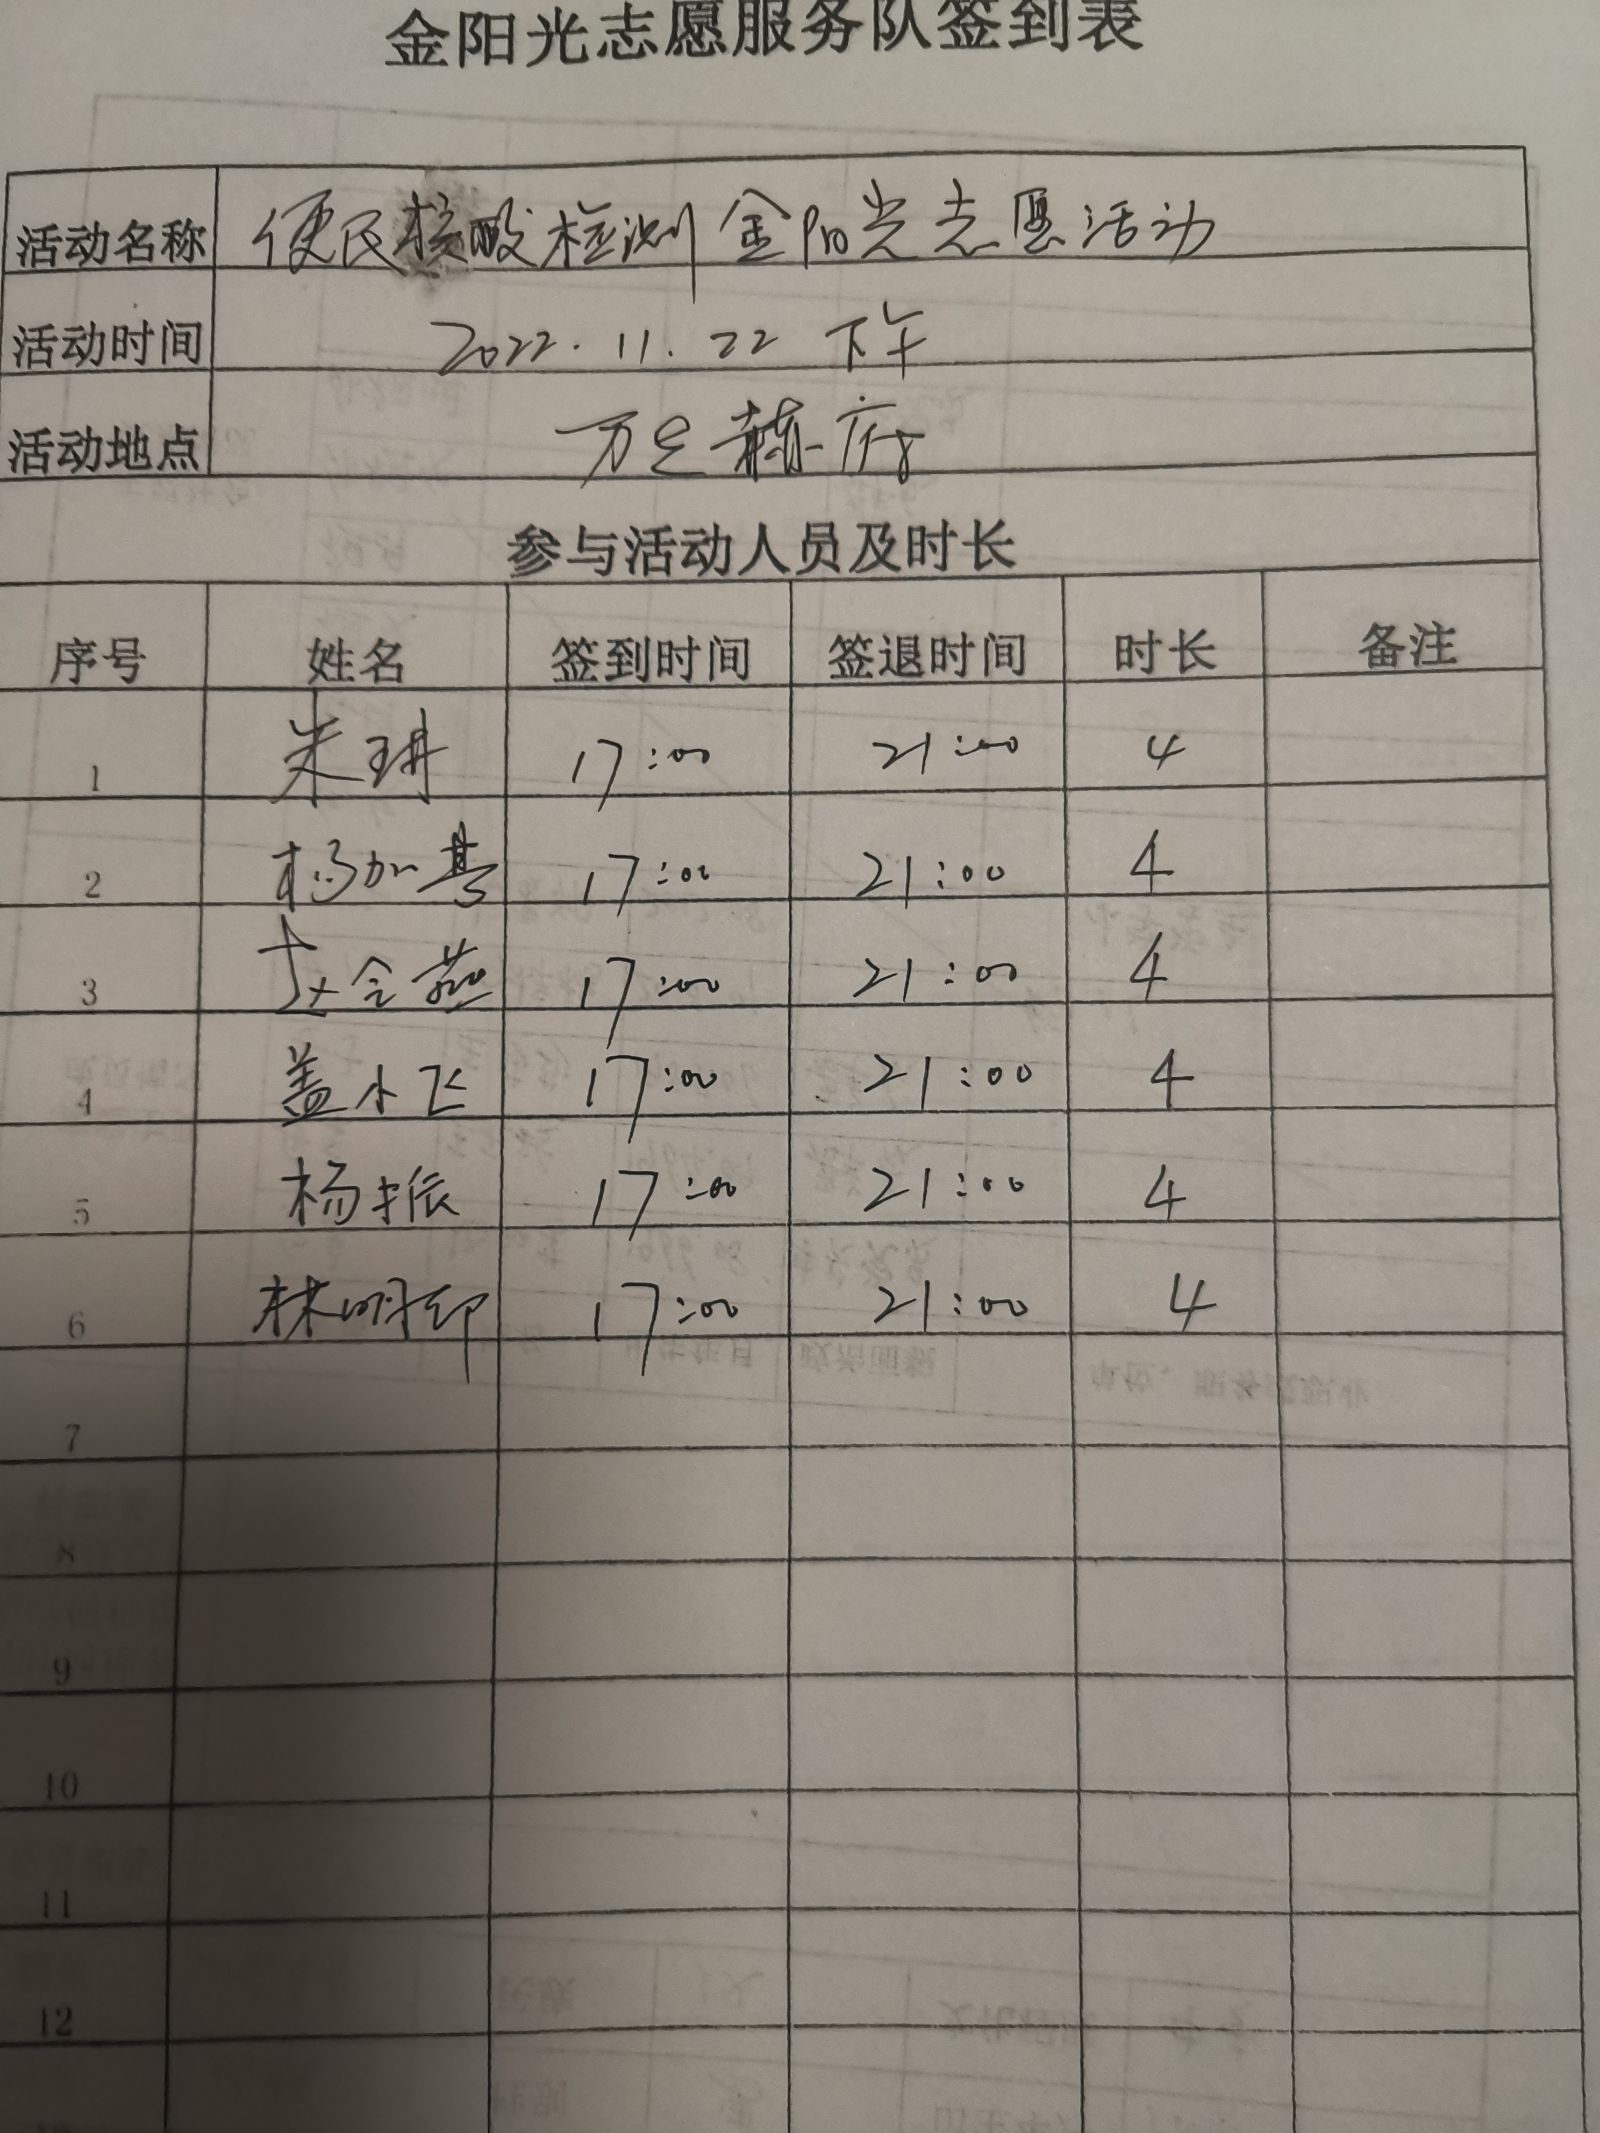 金阳光志愿服务队签到表
活动名称 便民核酸检测金阳光志愿活动
活动时间 2022.11.22 下午
活动地点 万
参与活动人员及时长
序号 姓名 签到时间 签退时间 时长 备注
1 朱琪 17:00 21:00 4
2 杨加基 17:00 21:00 4
3 会燕 17:00 21:00 4
4 盖小飞 17:00 21:00 4
5 杨振 17:00 21:00 4
6 林明印 17:00 21:00 4
7
8
9
10
11
12